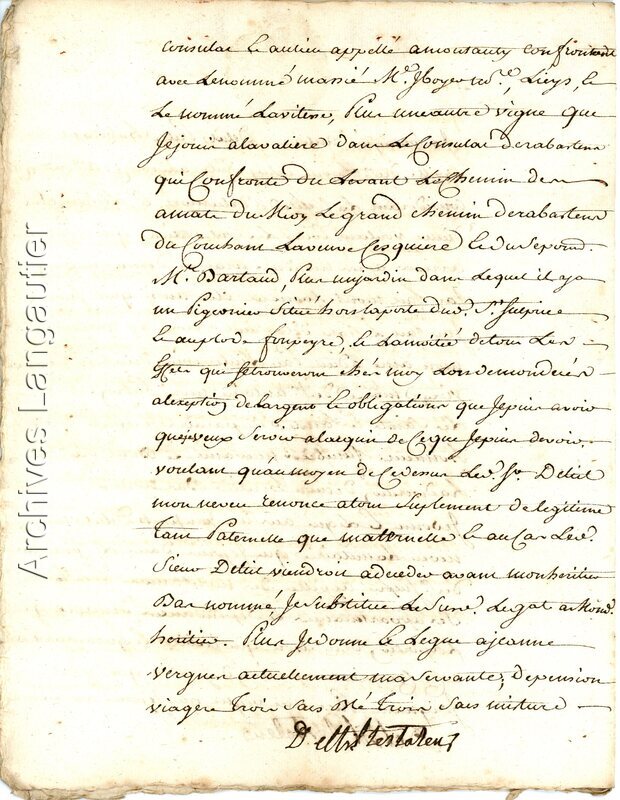 Consulat et au lieu appellé amontauty confrontent
avec le nommé massié Mr. Jboyer no.re, Lieys, et
Le nommé Lavitesse, Plus une autre vigne que
Je jouis alavaliere dans Le Consulat de rabastens
qui Confronte du Levant Le Chemin de
amate du Mioy Le grand chemin de rabastens
du Couchant La veuve Cesquiere et du Septond.
Mr. Bartaud, Plus un jardin dans Lequel il ya
un Pigeonier Situé hors la porte dud. St. Sulpice
et au plo de founpeyre, et La moitié de tous Les
Effets qui Setrouveron ches moy Lors de mon deces
alexeption de Largent et obligations que Je puis avoir
que je veux Servir a laquit de Ceque Je puis devoir.
voulant qu'au moyen de Ce dessus Led. Sr. Detil
mon neveu renonce a tout Suplement de legitime
Tant Paternelle que maternelle et au Cas Led.
Sieur Detil viendroit a deceder avant mon heritier
Bas nommé, Je Substitue Le Susd. Legat a mond.
heritier. Plus Je donne et Legue a jeanne
vergnes actuellement ma Servante, de pension
viagere Trois Sacs blé Trois Sacs mixture
testateur
Archives Langautier